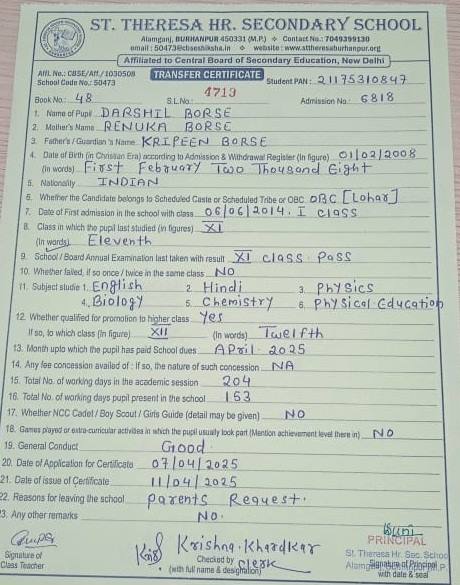 ST. THERESA HR. SECONDARY SCHOOL
Alamganj, BURHANPUR 450331 (M.P.) ❖ Contact No.: 7049399130
email : 50473@cbseshiksha.in ❖ website : www.sttheresaburhanpur.org
Affiliated to Central Board of Secondary Education, New Delhi
Affl. No.: CBSE/Aff./1030508
TRANSFER CERTIFICATE
School Code No.: 50473
Student PAN : 21175310847
Book No.: 48 S.L.No.: 4713 Admission No.: 6818
1. Name of Pupil DARSHIL BORSE
2. Mother's Name RENUKA BORSE
3. Father's / Guardian's Name KRIPEEN BORSE
4. Date of Birth (in Christian Era) according to Admission & Withdrawal Register (in figure) 01/02/2008
(in words) First February Two Thousand Eight
5. Nationality INDIAN
6. Whether the Candidate belongs to Scheduled Caste or Scheduled Tribe or OBC OBC [Lohar]
7. Date of First admission in the school with class 06/06/2014. I class
8. Class in which the pupil last studied (in figures) XI
(In words) Eleventh
9. School / Board Annual Examination last taken with result XI class Pass
10. Whether failed, if so once / twice in the same class NO
11. Subject studie 1. English 2. Hindi 3. Physics
4. Biology 5. Chemistry 6. Physical Education
12. Whether qualified for promotion to higher class Yes
If so, to which class (In figure) XII (In words) Twelfth
13. Month upto which the pupil has paid School dues April 2025
14. Any fee concession availed of : If so, the nature of such concession NA
15. Total No. of working days in the academic session 204
16. Total No. of working days pupil present in the school 153
17. Whether NCC Cadet / Boy Scout / Girls Guide (detail may be given) NO
18. Games played or extra-curricular activities in which the pupil usually took part (Mention achievement level there in) NO
19. General Conduct Good
20. Date of Application for Certificate 07/04/2025
21. Date of issue of Certificate 11/04/2025
22. Reasons for leaving the school Parents Request.
23. Any other remarks NO.
Krishna Khardkar
PRINCIPAL
Signature of
Class Teacher
Checked by clerk
(with full name & designation)
St. Theresa Hr. Sec. School
Signature of Principal
with date & seal